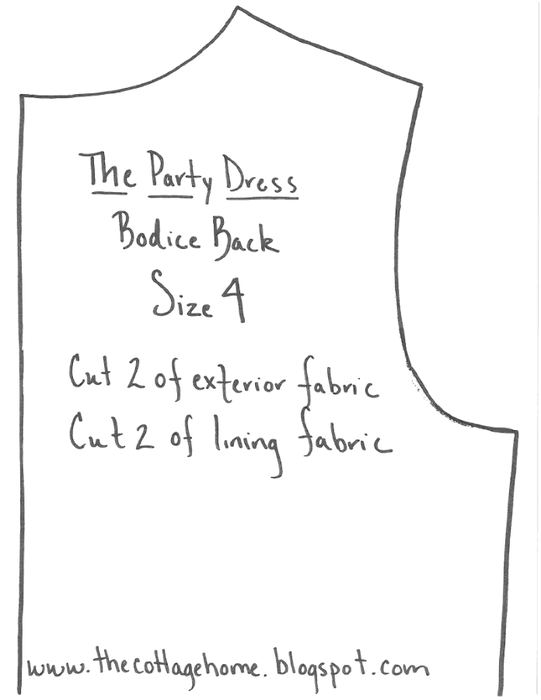 The Party Dress
Bodice Back
Size 4
Cut 2 of exterior fabric
Cut 2 of lining fabric
www.thecottagehome.blogspot.com